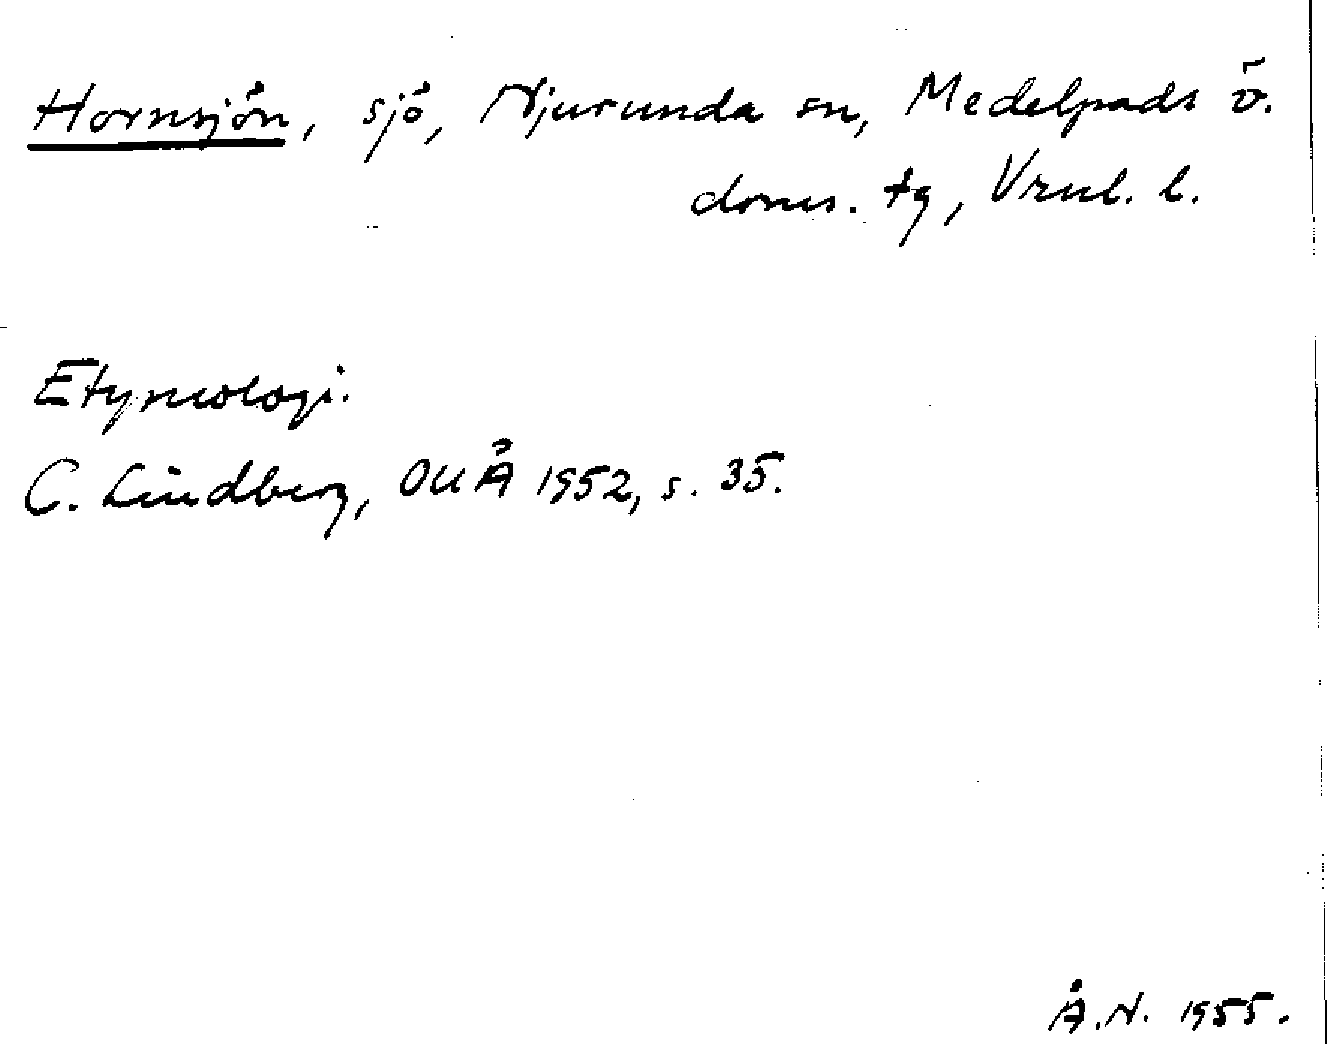 Hornsjön, sjö, Njurunda sn, Medelpads ö.
doms. tg, Vrnl. l.
Etymologi.
C. Lindberg, OUÅ 1952, s. 35.
Å.N. 1955.